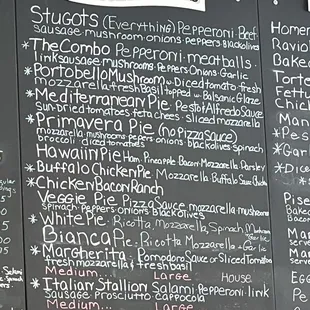 Stugots (Everything) Pepperoni Beef
sausage mushroom onions peppers Black olives
*The Combo Pepperoni meatballs
link sausage mushrooms Peppers Onions Garlic
*Portobello Mushroom w/ Diced tomato fresh
mozzarella fresh Basil topped w/ Balsamic Glaze
*Mediterranean Pie Pesto/Alfredo Sauce
Sun-dried tomatoes feta cheese sliced mozzarella
*Primavera Pie (no Pizza Sauce)
mozzarella mushrooms peppers onions blackolives spinach
broccoli diced tomatoes
Hawaiin Pie Ham Pineapple Bacon Mozzarella Parsley
*Buffalo Chicken Pie Mozzarella Buffalo Sauce
*Chicken Bacon Ranch
Veggie Pie Pizza Sauce mozzarella mushrooms
Spinach peppers onions black olives
*White Pie Ricotta, Mozzarella, Spinach, Mushroom
Garlic
Bianca Pie Ricotta Mozzarella Garlic
*Margherita Pomodoro Sauce or Sliced Tomatoes
fresh mozzarella & fresh basil
Medium... Large House
*Italian Stallion Salami Pepperoni link
Sausage Prosciutto cappocola
Medium Large
Home
Ravio
Bake
Torte
Fettu
Chick
Man
*Pes
*Gar
*Dice
Pise
Baked
Bacon
Mar
serve
Mar
serve
Egg
Pe